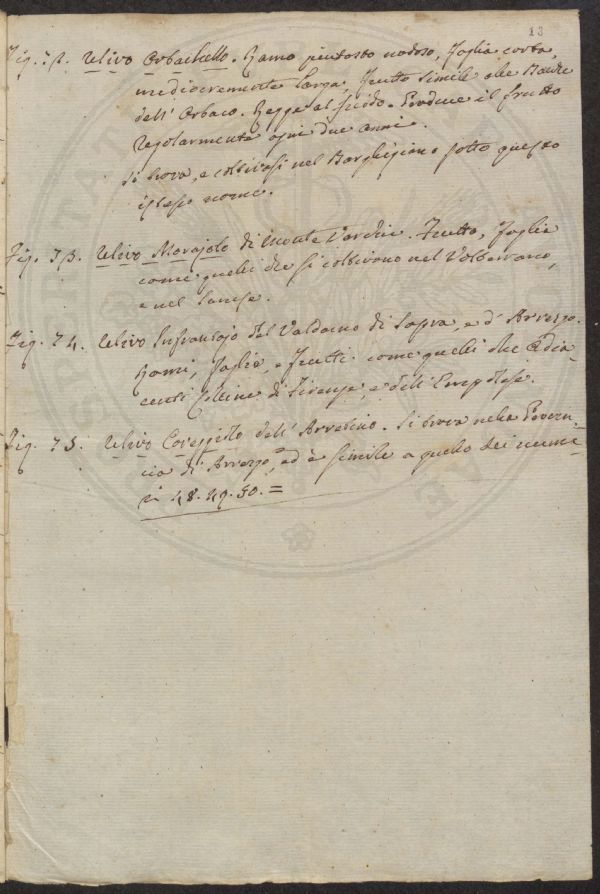 13
Fig. 72. Ulivo Orbachello. Ramo piutosto nodoso, Foglia corta,
mediocremente larga, Frutto simile alle Bacche
dell'Orbaco. Regge al freddo. Produce il frutto
regolarmente ogni due anni.
Si trova, e coltivasi nel Borghigiano sotto questo
istesso nome.
Fig. 73. Ulivo Morajolo di Monte Varchi. Frutto, Foglie
come quelli che si coltivono nel Volterrano,
e nel Sanese.
Fig. 74. Ulivo Infrantojo del Valdarno di Sopra, e d'Arrezzo.
Rami, Foglie, e Frutti come quelli che Adia-
centi Colline di Firenze, e dell'Empolese.
Fig. 75. Ulivo Coreggiolo dell'Arretino. Si trova nella Provin-
cia di Arrezzo, ed è simile a quello dei nume-
ri 48. 49. 50. =